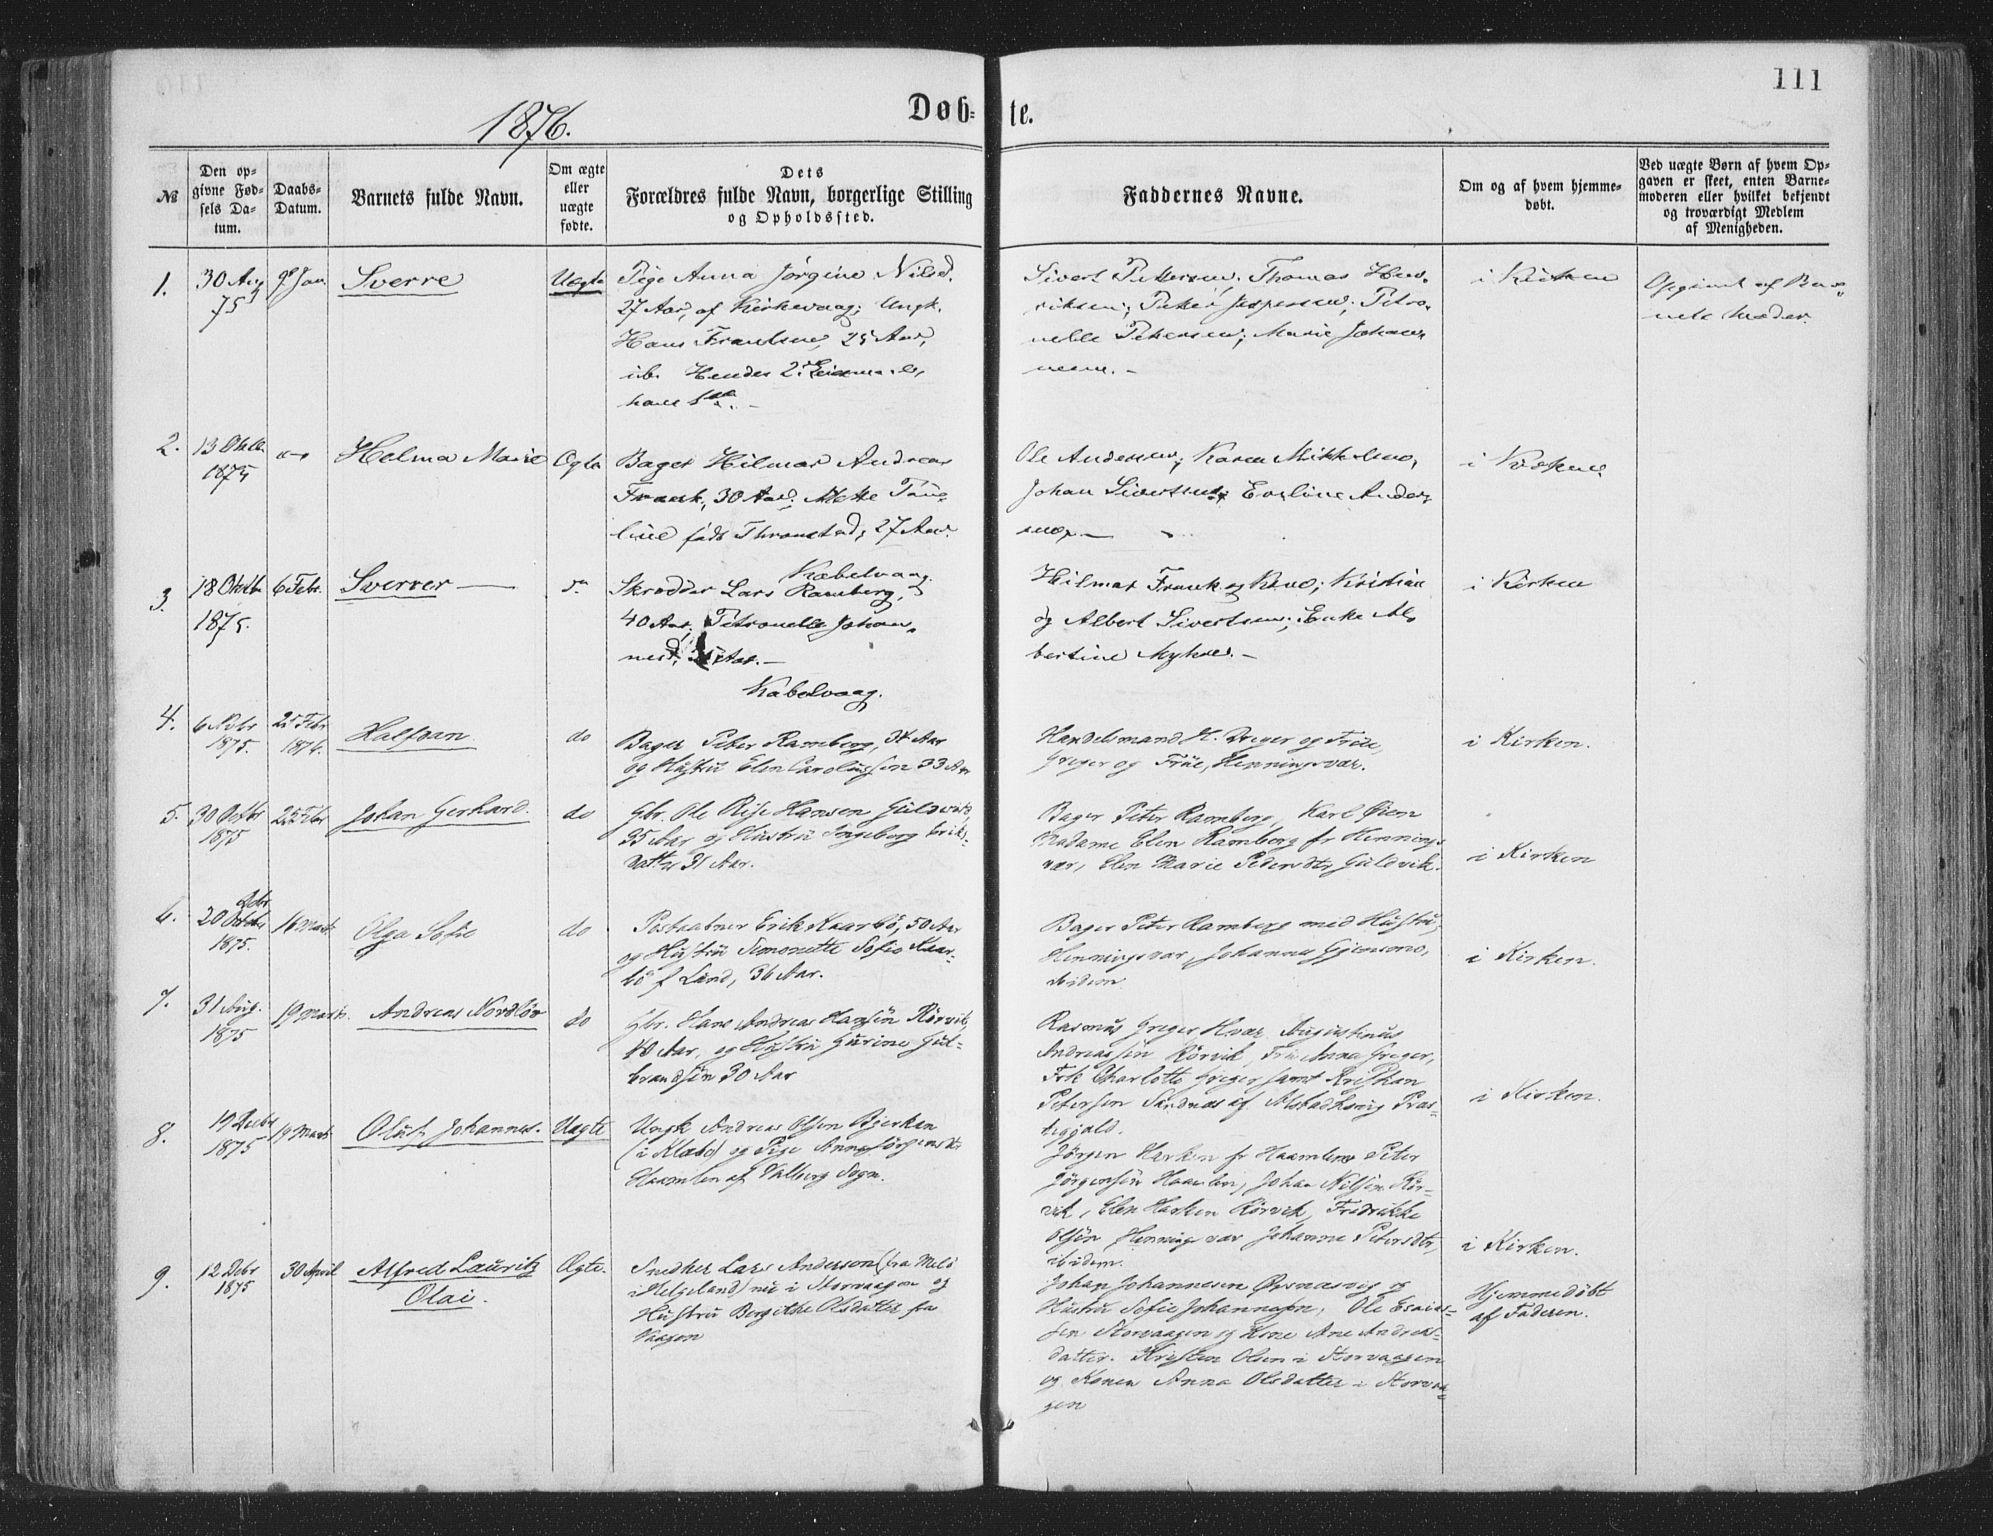 111
1876.
Døb-te.
№
Den op-
givne Fød-
sels Da-
tum.
Daabs-
Datum.
Barnets fulde Navn.
Om ægte
eller
uægte
fødte.
Dets
Forældres fulde Navn, borgerlige Stilling
og Opholdsted.
Faddernes Navne.
Om og af hvem hjemme-
døbt.
Ved uægte Børn af hvem Op-
gaven er skeet, enten Barne-
moderen eller hvilket bekjendt
og troværdigt Medlem
af Menigheden.
1.
30 Aug
75
9de Jan.
Sverre
Uægte
Pige Anna Jørgine Nilsd.
27 Aar, af Kirkevaag; Ungk.
Hans Frantsen, 25 Aar,
Hendes 2.
hans 1ste.
Sivert Pettersen; Thomas Hen-
riksen; Petter Jespersen; Petro-
nelle Petersen; Marie Johan-
nesen.
i Kirken
Opgivet af Bar-
nets Moder.
2.
13 Oktbr
1875
Helma Marie
Ægte
Bager Hilmar Andreas
Frank, 30 Aar; Mette Pau-
line født Thronstad, 27 Aar.
Kabelvaag.
Ole Andersen; Karen Mikkelsen,
Johan Sivertsen; Eveline Ander-
sen.
i Kirken
3.
18 Oktbr
1875.
6 Febr.
Sverver
do
Skrædder Lars Ramberg,
40 Aar; Petronelle Johan-
nesd, Aar.
Kabelvaag.
Hilmar Frank og Kone; Kristian
og Albert Sivertsen; Enke Al-
bertine Myhre.
i Kirken
4.
6 Novbr
1875.
25 Febr
1876.
Halfdan
do
Bager Peter Ramberg, 34 Aar
og Hustru Elen Carolussen 33 Aar
Handelsmand H. Greger og Frue,
Greger og Frue, Henningsvær.
i Kirken.
5.
30 Octbr
1875
25 Febr
Johan Gerhard.
do
Gbr. Ole Rise Hansen Guldvik,
35 Aar og Hustru Ingeborg Erik-
datter 31 Aar.
Bager Peter Ramberg, Karl Øien
Madame Elen Ramberg fr Hennings-
vær, Elen Marie Pedersdtr Guldvik.
i Kirken
6.
Debr
20 October
1875.
16 Marts
Olga Sofie
do
Postaabner Erik Kaarbö, 50 Aar
og Hustru Simonette Sofie Kaar-
bö f Lund, 36 Aar.
Bager Peter Ramberg med Hustru,
Henningsvær, Johanna Gjensono,
ibidem.
i Kirken.
7.
31 Aug.
1875
19 Marts.
Andreas Nordlöv
do
Gbr. Hans Andreas Hansen Rörvik,
40 Aar, og Hustru Gurine Gul-
brandsen 30 Aar
Rasmus Greger Hvær, Augustinus
Andreassen Rörvik, Frue Anna Greger,
Frk Charlotte Greger samt Kristian
Petersen Sandnes af Alstadhoug Præs-
tegjæld.
i Kirken.
8.
19 Decbr
1875
19 Marts
Oluf Johannes.
Uægte
Ungk Andreas Olsen Bjerkan
(i Klæbo) og Pige Anna Jörgensdtr
Haamlen af Valberg Sogn.
Jörgen Hansen fr Haamlen, Peter
Jörgensen Haamlen, Johan Nilsen Rör-
vik, Elen Hansen Rörvik, Fredrikke
Olsen Henningsvær Johanna Petersdtr,
ibidem.
i Kirken.
9.
12 Debr
1875
30 April
Alfred Lauritz
Olai.
Ægte.
Snedker Lars Anderson (fra Melö
i Helgeland) nu i Storvaagen og
Hustru Bergithe Olsdatter fra
Vaagen
Johan Johannesen Örsnesvig og
Hustru Sofie Johannesen, Ole Esaias-
sen Storvaagen og Kone Ane Andreas-
datter. Kristen Olsen i Storvaagen
og Konen Anna Olsdatter i Storvaa-
gen
Hjemmedöbt
af Faderen.